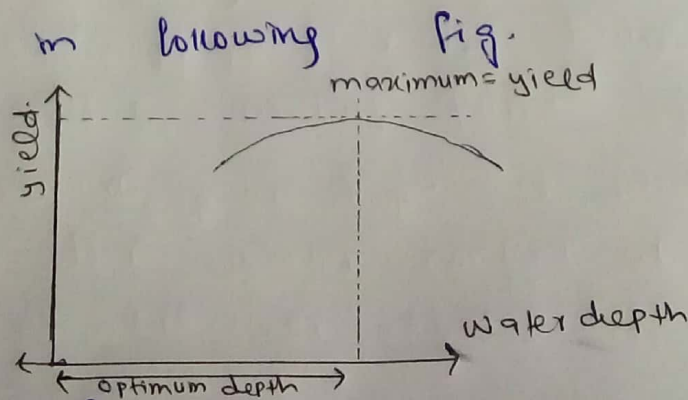 in following fig.
maximum = yield
yield.
water depth
optimum depth